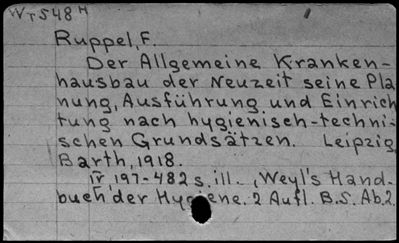 WT548H
Ruppel, F.
Der Allgemeine Kranken-
hausbau der Neuzeit seine Pla
nung, Ausführung und Einrich
tung nach hygienisch-techni-
schen Grundsätzen. Leipzig,
Barth, 1918.
iv, 197-482 s. ill. (Weyl's Hand-
buch der Hygiene. 2 Aufl. B.5. Ab.2